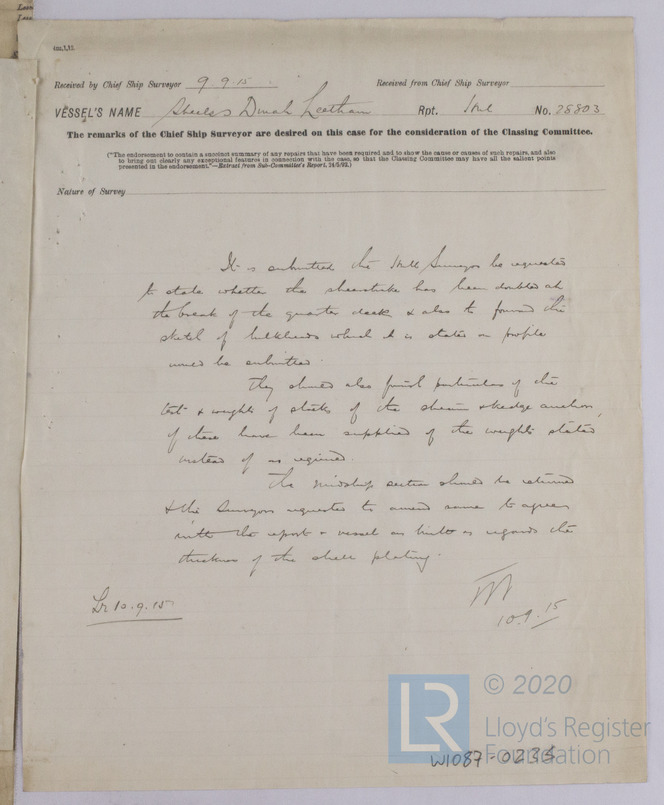 Received by Chief Ship Surveyor 9.9.15 Received from Chief Ship Surveyor
VESSEL'S NAME Dinah Leetham Rpt. Hull No. 28803
The remarks of the Chief Ship Surveyor are desired on this case for the consideration of the Classing Committee.
("The endorsement to contain a succinct summary of any repairs that have been required and to show the cause or causes of such repairs, and also
to bring out clearly any exceptional features in connection with the case, so that the Classing Committee may have all the salient points
presented in the endorsement."—Extract from Sub-Committee's Report, 24/5/92.)
Nature of Survey
It is submitted the Hull Surveyors be requested
to state whether the sheerstrake has been doubled at
the break of the quarter deck & also to forward the
sketch of bulkheads which it is stated on profile
would be submitted.
They should also furnish particulars of the
test & weights of stocks of the stream & kedge anchors,
if these have been supplied of the weights stated
instead of as required.
The midship section should be returned
& the Surveyors requested to amend same to agree
with the report & vessel as built as regards the
thickness of the shell plating.
Lr 10.9.15
10.9.15
LR © 2020
Lloyd's Register
Foundation
W1087-0235